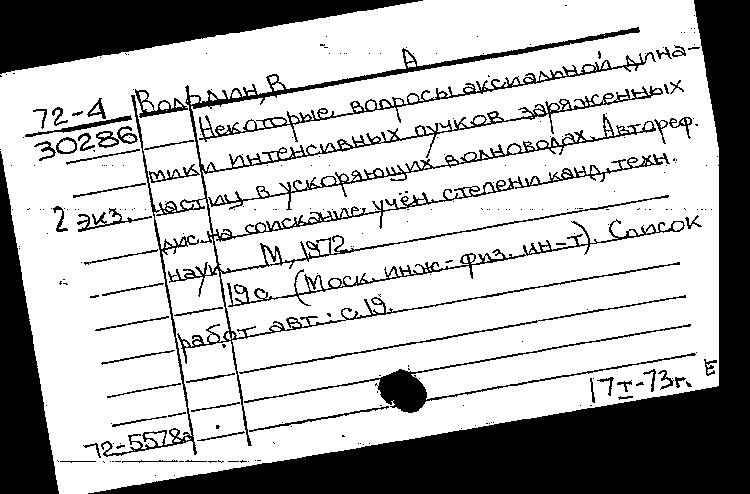 72-4
30286
2 экз.
Володин, В А
Некоторые вопросы аксиальной дина-
мики интенсивных пучков заряженных
частиц в ускоряющих волноводах. Автореф.
дис. на соискание учён. степени канд. техн.
наук. М, 1972.
19с. (Моск. инж.-физ. ин-т). Список
работ авт.: с. 19.
17I-73г. Е
72-5578а